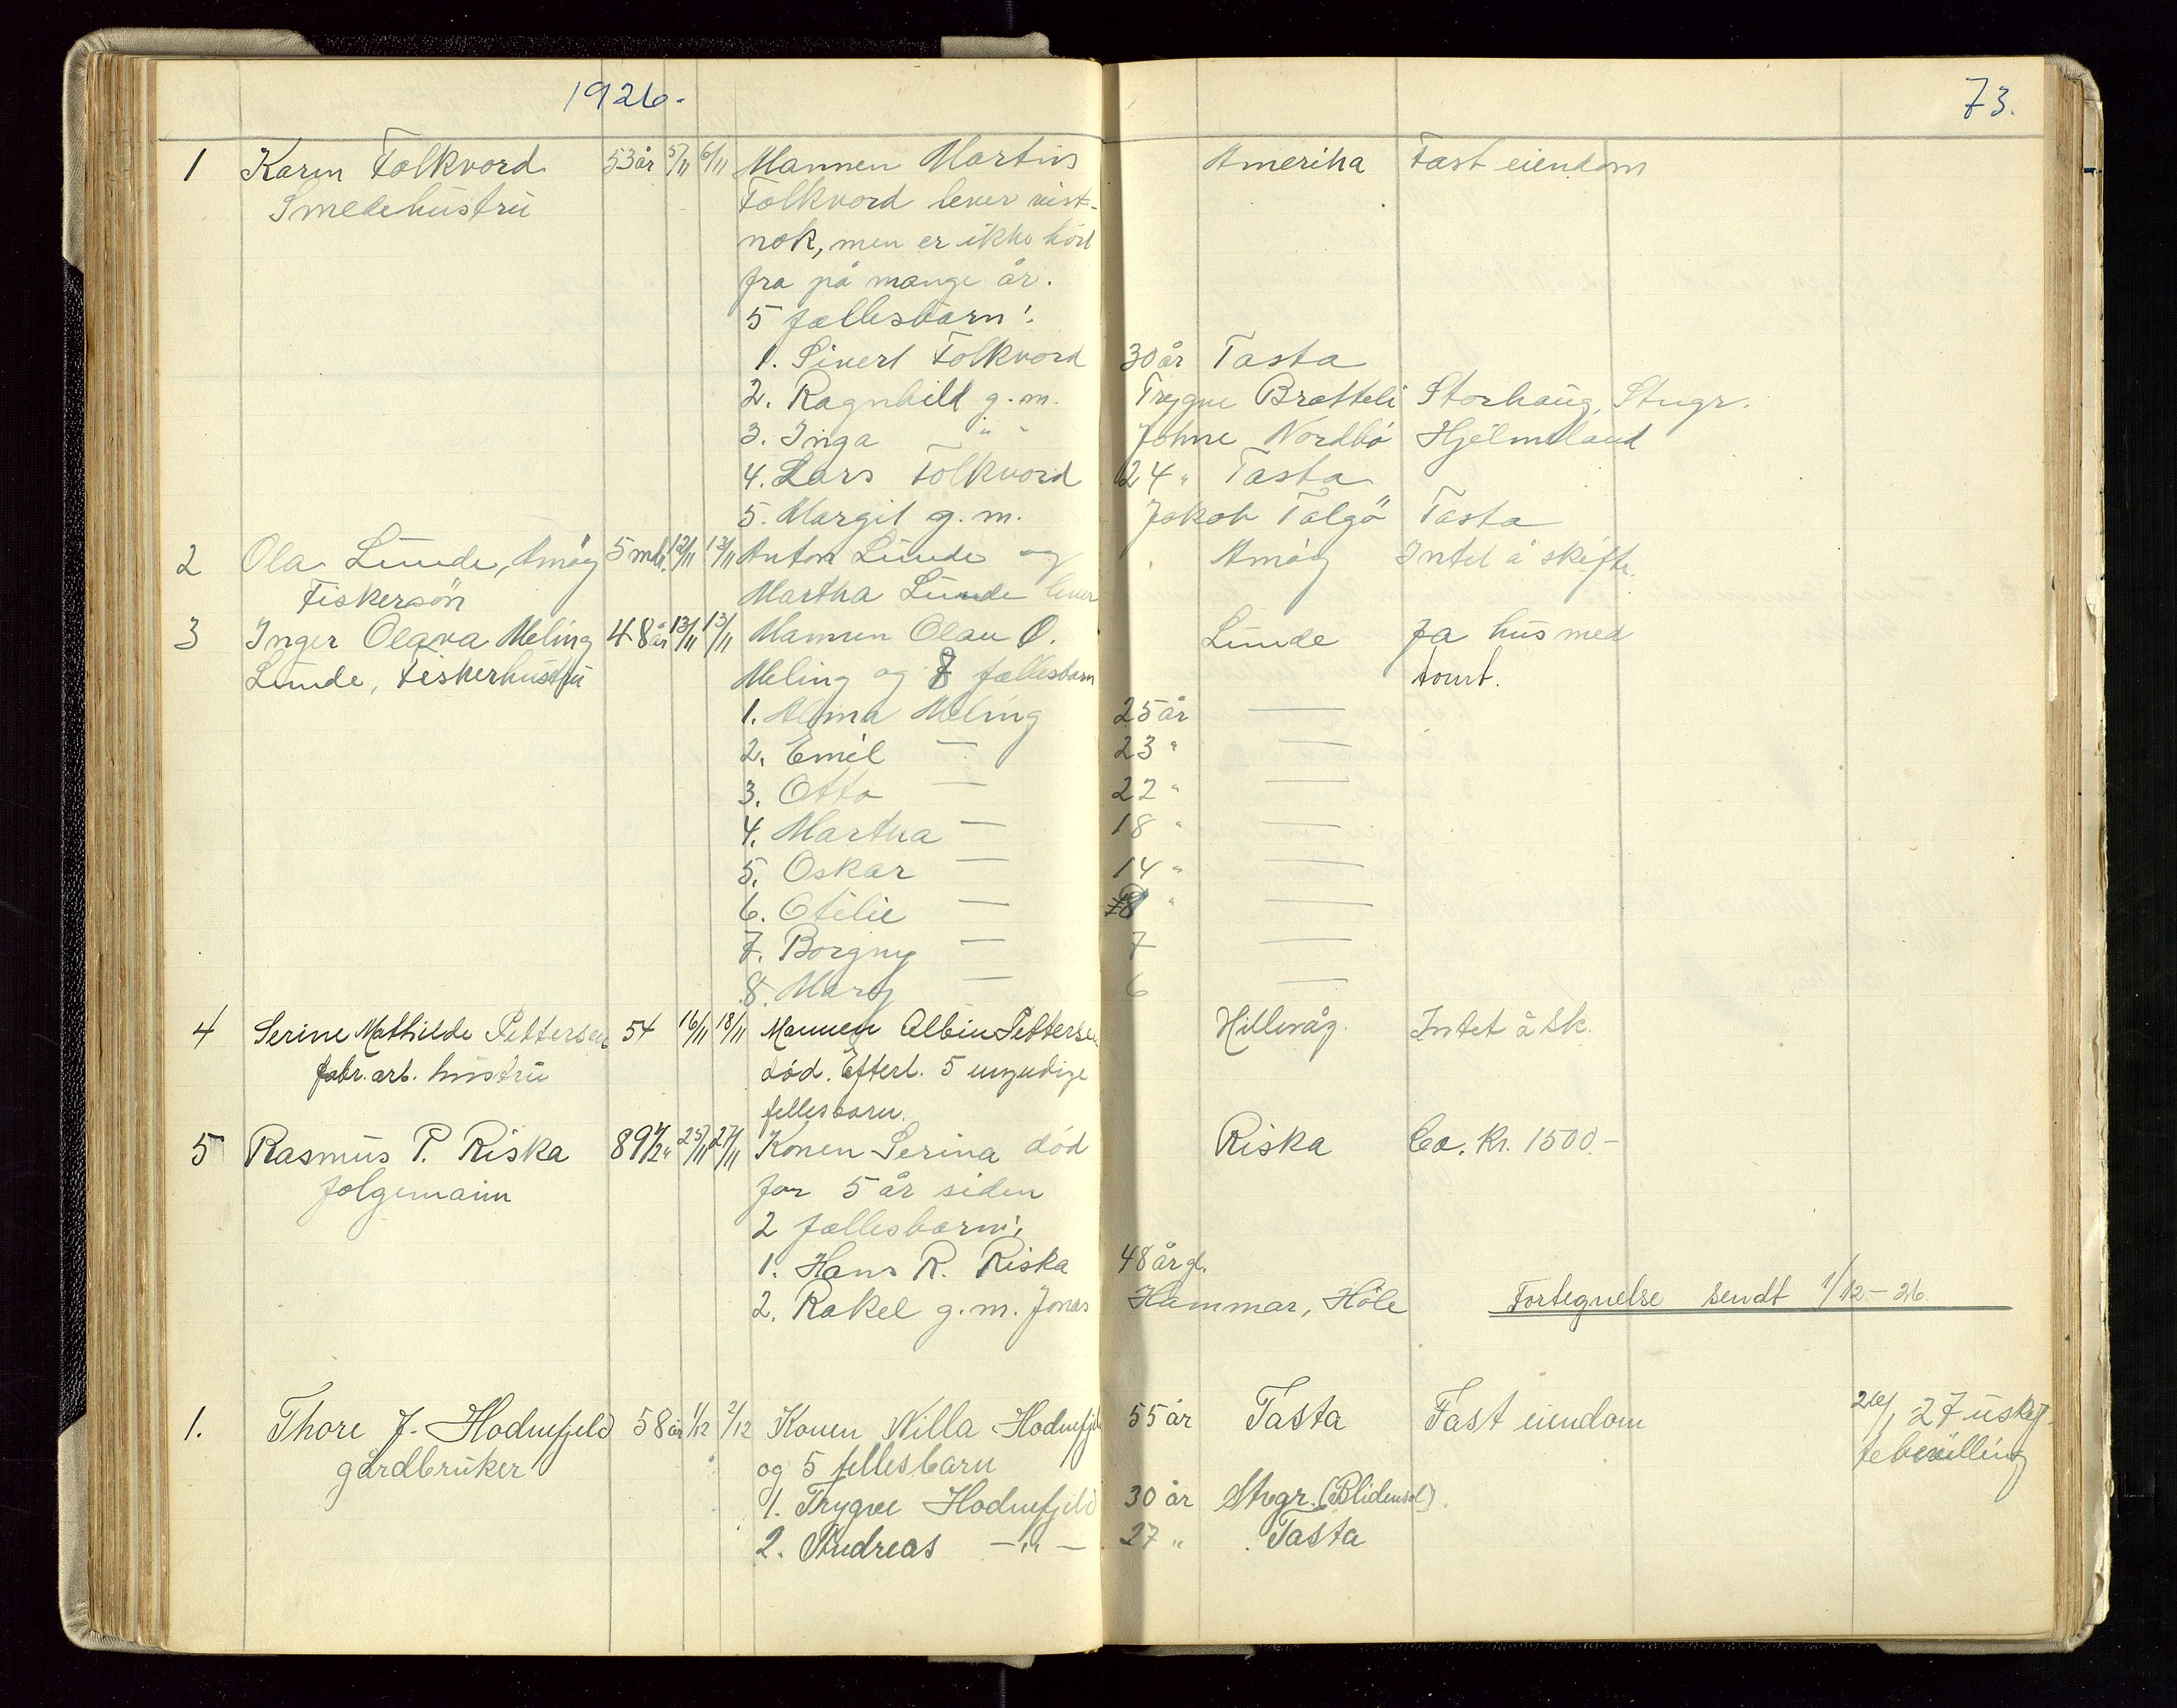 1926.
73.
1 Karen Folkvord 53 år 5/11 6/11 Mannen Martin Amerika Fast eiendom
Smedehustru Folkvord lever vist-
nok, men er ikke hört
fra på mange år.
5 fællesbarn:
1. Sivert Folkvord 30 år Tasta
2. Ragnhild g.m. Trygve Bratteli Storhaug, Stvgr.
3. Inga " " Johne Nordbö Hjelmeland
4. Lars Folkvord 24 " Tasta
5. Margit g.m. Jakob Talgö Tasta
2 Ola Lunde, Åmöy 5 mdr. 12/11 13/11 Anton Lunde og Åmöy Intet å skifte.
Fiskersön Martha Lunde lever
3 Inger Olava Meling 48 år 13/11 13/11 Mannen Olau O. Lunde Ja hus med
Lunde, Fiskerhustru Meling og 8 fællesbarn tomt.
1. Alma Meling 25 år —
2. Emil — 23 " —
3. Otto — 22 " —
4. Martha — 18 " —
5. Oskar — 14 " —
6. Otilie — " —
7. Borgny — 7 —
8. Mary — 6 —
4 Serine Mathilde Pettersen 54 16/11 18/11 Mannen Albin Pettersen Hillevåg. Intet å sk.
fabr.arb. hustru död. Efterl. 5 umyndige
fellesbarn.
5 Rasmus P. Riska 89 1/2 " 25/11 27/11 Konen Serina död Riska Ca. Kr. 1500.-
folgemann for 5 år siden
2 fællesbarn:
1. Hans R. Riska 48 år gl.
2. Rakel g.m. Jonas Hammar, Höle Fortegnelse sendt 1/12-26.
1. Thore J. Hodnefjeld 58 år 1/12 2/12 Konen Nilla Hodnefjeld 55 år Tasta Fast eiendom 27 uskif-
gårdbruker og 5 fellesbarn tebevilling
1. Trygve Hodnefjeld 30 år Stvgr. (Blidensol)
2. Andreas —"— 27 " Tasta